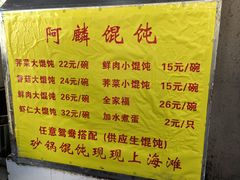 阿麟馄饨
荠菜大馄饨 22元/碗 鲜肉小馄饨 15元/碗
蘑菇大馄饨 24元/碗 荠菜小馄饨 15元/碗
鲜肉大馄饨 26元/碗 全家福 26元/碗
虾仁大馄饨 32元/碗 加水煮蛋 2元/只
任意鸳鸯搭配（供应生馄饨）
砂锅馄饨现现上海滩